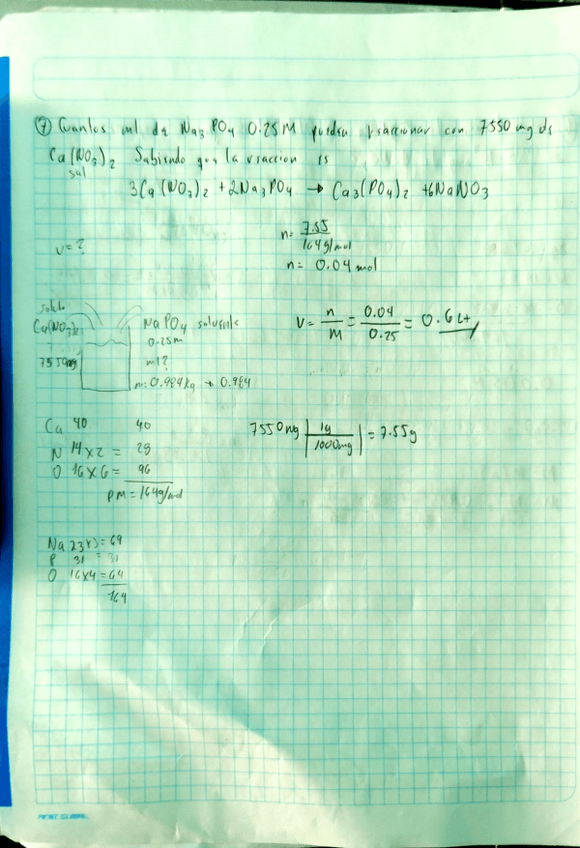 ⑦ Cuantos ml de Na₃PO₄ 0.25M pueden reaccionar con 7550 mg de
Ca(NO₃)₂ Sabiendo que la reaccion es
sal
3Ca(NO₃)₂ + 2Na₃PO₄ → Ca₃(PO₄)₂ + 6NaNO₃
v=?
n= 7.55
164g/mol
n= 0.04 mol
soluto
Ca(NO₃)₂
7550mg
NaPO₄ solvente
0.25M
ml?
m=0.984kg → 0.984
V= n/M = 0.04/0.25 = 0.6 Lt
Ca 40 40
N 14x2 = 28
O 16x6 = 96
PM = 164g/mol
7550mg | 1g/1000mg | = 7.55g
Na 23x3 = 69
P 31 = 31
O 16x4 = 64
164